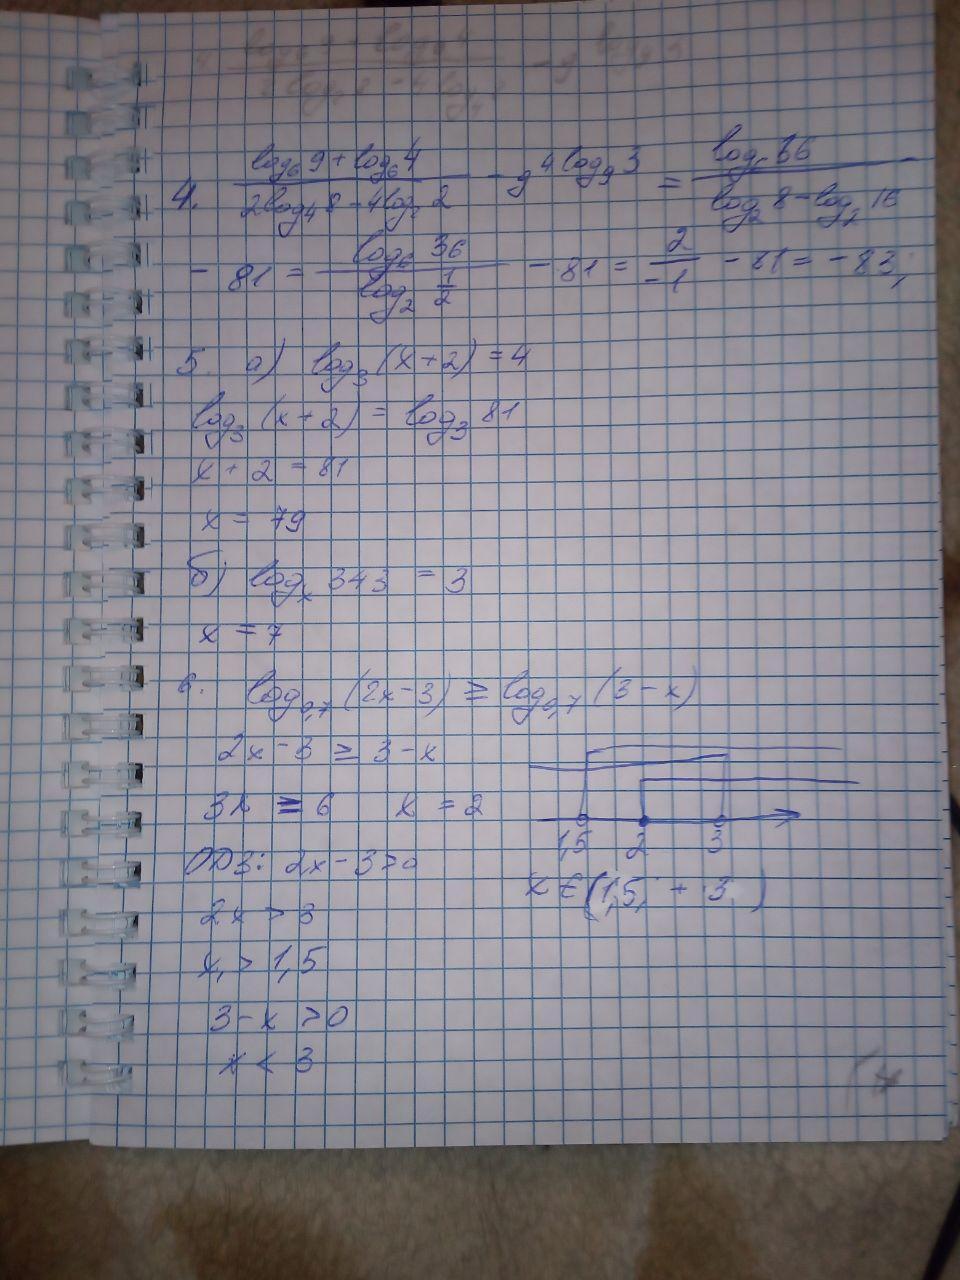 4. (log₆ 9 + log₆ 4) / (2log₄ 8 - 4log₂ 2) - 9^(4 log₉ 3) = log₆ 36 / (log₂ 8 - log₂ 16)
- 81 = log₆ 36 / log₂ 1/2 - 81 = 2 / -1 - 81 = - 83;
5. а) log₃ (x + 2) = 4
log₃ (x + 2) = log₃ 81
x + 2 = 81
x = 79
б) logₓ 343 = 3
x = 7
6. log₀,₇ (2x - 3) ≥ log₀,₇ (3 - x)
2x - 3 ≥ 3 - x
3x ≥ 6 x = 2
1,5 2 3
ОДЗ: 2x - 3 > 0
x ∈ (1,5; + 3 )
2x > 3
x > 1,5
3 - x > 0
x < 3